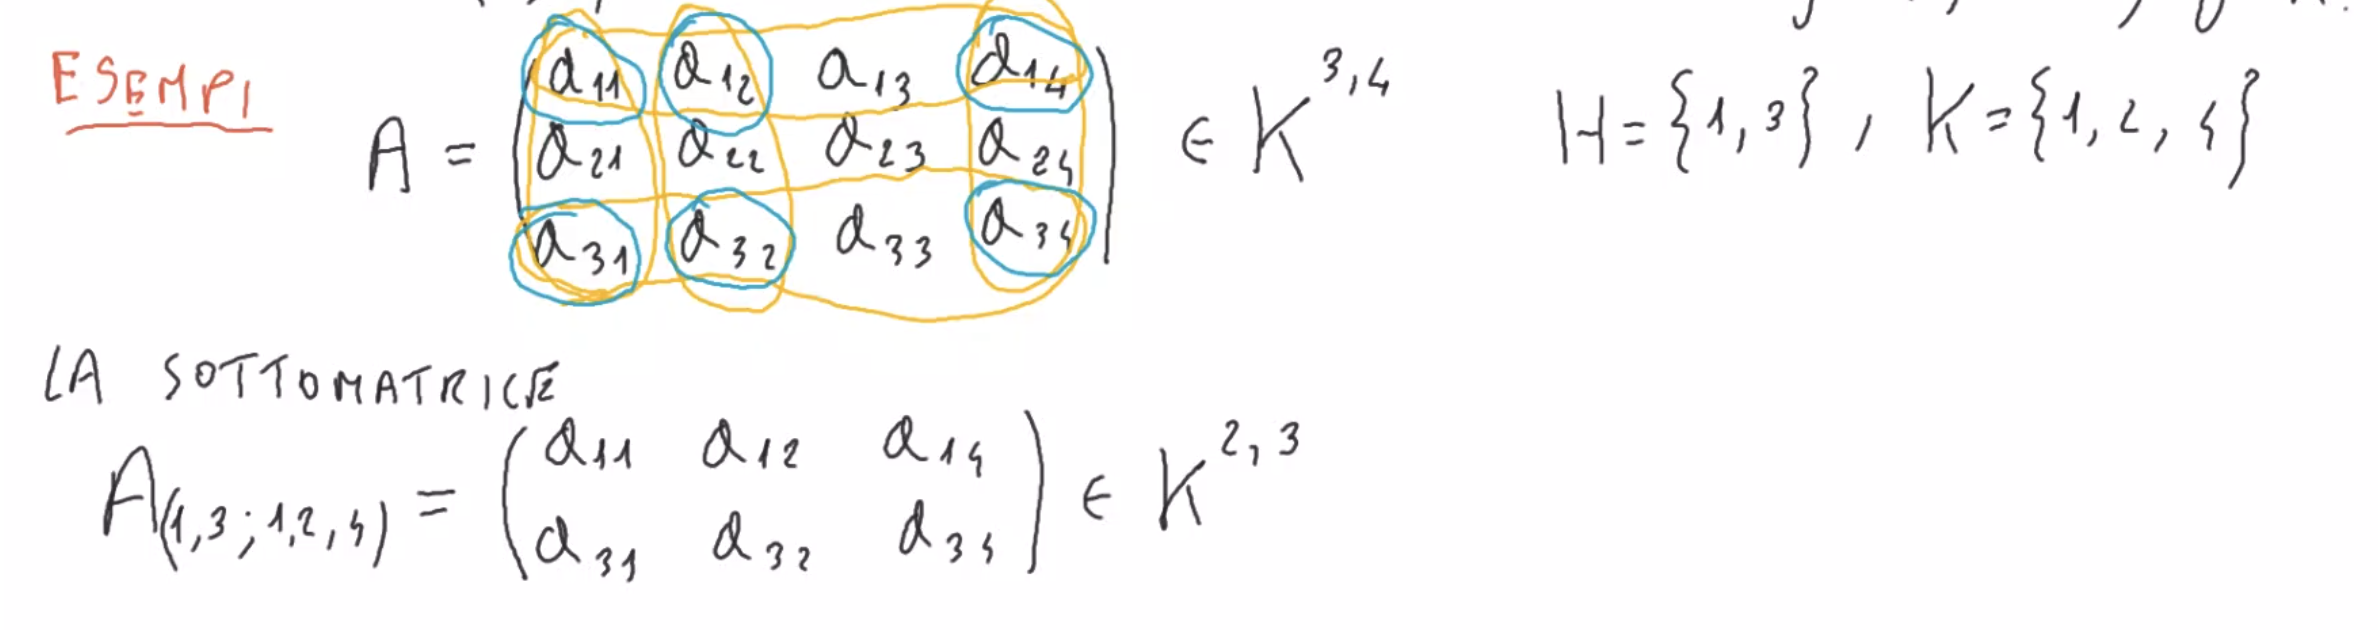 ESEMPI
A = ( a11 a12 a13 a14
a21 a22 a23 a24
a31 a32 a33 a34 ) ∈ K^3,4    H = {1, 3} , K = {1, 2, 4}
LA SOTTOMATRICE
A(1,3;1,2,4) = ( a11 a12 a14
a31 a32 a34 ) ∈ K^2,3